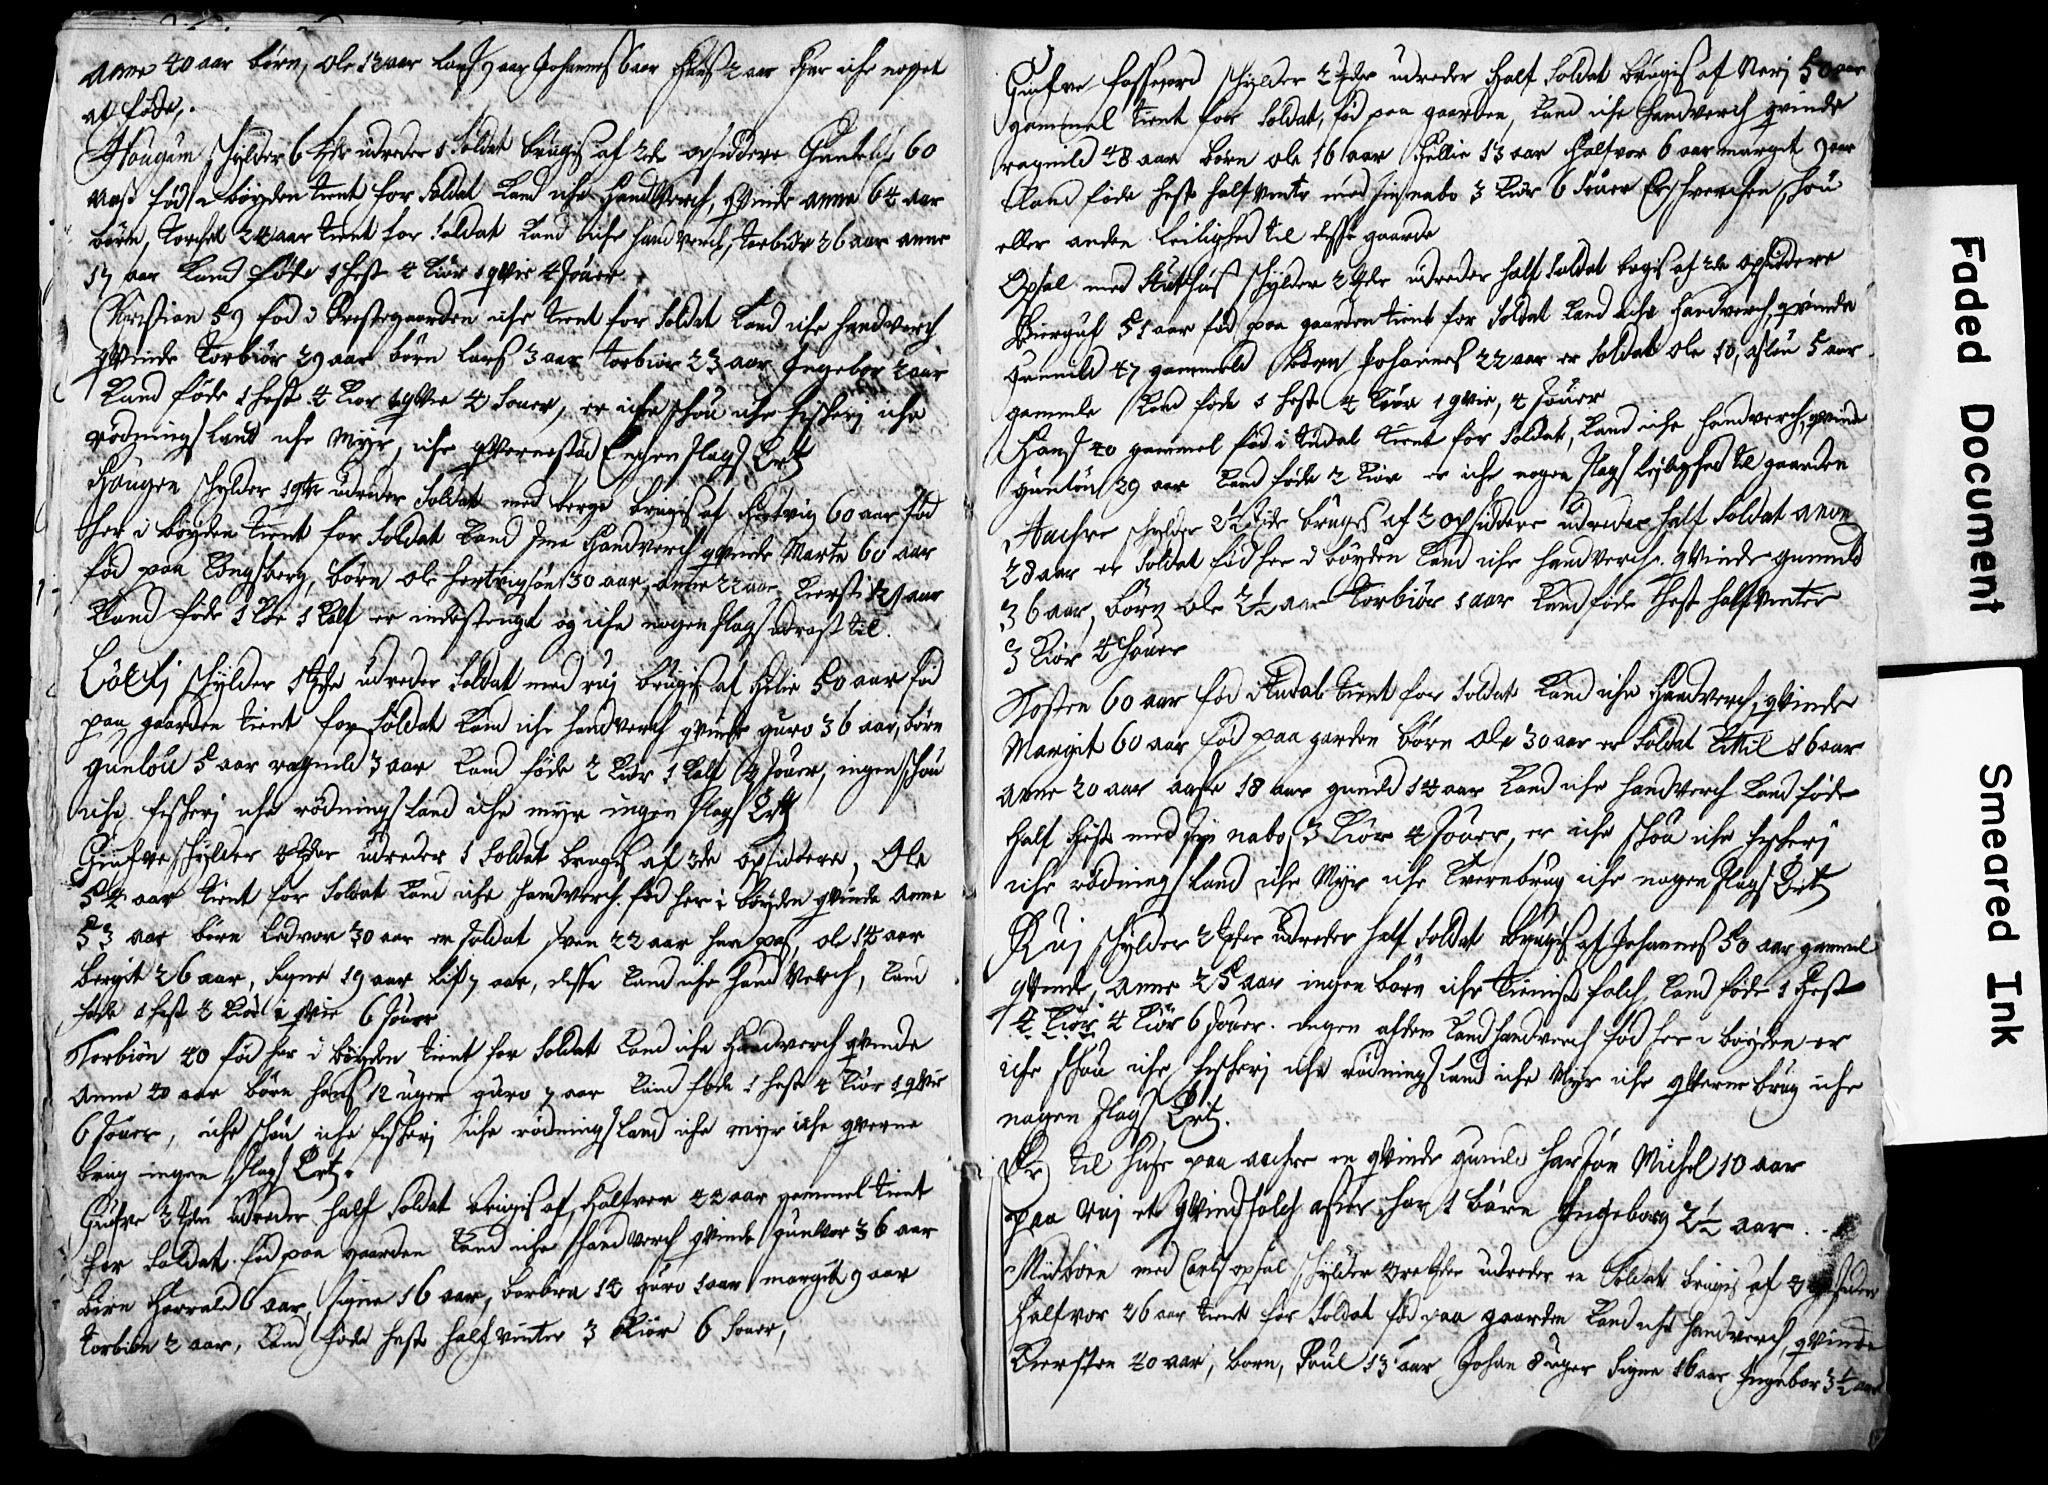 Anne 40 aar börn, ole 12 aar lars 9 aar Johannes 6 aar Hans 2 aar Har iche noget
at föde,.
Hougum schylder 6 tdr udreder 1 Soldat brugis af 2de opsiddere 60
aar född i böyden tient for Soldat Kand iche Handtverch, qvinde anne 64 aar
börn, Torchel 24 aar tient for Soldat Kand iche handverch, torbiör 36 aar anne
17 aar Kand föde 1 hest 4 Kiör 1 qvie 4 Souer
Christian 59 föd i Prestegaarden iche tient for Soldat Kand iche handverch
qvinde Torbiör 29 aar börn lars 3 aar torbiör 23 aar Ingebor 2 aar
Kand föde 1 hest 4 Kiör 1 qvie 4 Souer, er iche schou iche fischerj iche
rödnings land iche Myr, iche qvernestad Engen slags Ertz
Haugen schylder udreder Soldat med berge brugis af Hertvig 60 aar föd
her i böyden tient for Soldat Kand Handverch qvinde Marte 60 aar
föd paa Kongsberg, börn ole hertvigsön 30 aar, anne 22 aar Kiersti 21 aar
Kand föde 1 Koe 1 Kalf er indestengt og iche nogen slags udrast til.
schylder udreder Soldat med ruj brugis af Helie 50 aar föd
paa gaarden tient for Soldat Kand iche handverch qvinde guro 36 aar, börn
gunlou 5 aar ragnild 3 aar Kand föde 2 Kiör 1 Kalf 4 Souer, ingen schou
iche fischerj iche rödnings land iche myr ingen slags Ertz
schylder udreder 1 Soldat brugis af 2de opsiddere, Ole
54 aar tient for Soldat Kand iche handverch föd her i böyden qvinde Anne
53 aar börn Ledvor 30 aar er soldat Sven 22 aar har pas, ole 14 aar
bergit 26 aar, Signe 19 aar 7 aar, disse Kand iche handverch, Kand
föde 1 hest 4 Kiör 1 qvie 6 Souer
Torbiön 40 föd her i böyden tient for Soldat Kand iche Handverch qvinde
Anne 40 aar börn hans 12 uger guro 7 aar Kand föde 1 hest 4 Kiör 1 qvie
6 Souer, iche schou iche fischerj iche rödnings land iche myr iche qverne
brug ingen slags Ertz.
udreder half Soldat brugis af, halfvor 44 aar gammel tient
for Soldat föd paa gaarden Kand iche Handverch qvinde gunvor 36 aar
börn Harrald 6 aar, Signe 16 aar, barbra 14 guro 1 aar margit 9 aar
torbiön 2 aar, Kand föde hest half vinter 3 Kiör 6 Souer,
schylder udreder Half Soldat brugis af Nerj 50 aar
gammel tient for Soldat, föd paa gaarden, Kand iche Handverch qvinde
ragnild 48 aar börn ole 16 aar Hellie 13 aar Halfvor 6 aar margit 9 aar
Kand föde hest half vinter med sin nabo 3 Kiör 6 Souer Er hverchen schou
eller anden leilighed til disse gaarde
Opsal med schylder udreder half Soldat brugis af 2de opsiddere
51 aar föd paa gaarden tient for Soldat Kand iche handverch, qvinde
gunnild 47 gammel börn Johannes 22 aar er Soldat ole 10, aslou 5 aar
gamle Kand föde 1 hest 4 Kiör 1 qvie, 4 Souer
Hans 40 gammel föd i tudal tient for Soldat, Kand iche handverch, qvinde
gunlou 29 aar Kand föde 2 Kiör er iche nogen slags leylighed til gaarden
Aachre schylder 2½ brugis af 2 opsiddere udreder half Soldat
28 aar er Soldat föd her i böyden Kand iche handverch. qvinde gunnild
36 aar, börn ole 2½ aar Torbiör 1 aar Kand föde hest half vinter
3 Kiör 4 Souer
Tosten 60 aar föd i tudal tient for Soldat Kand iche Handverch, qvinde
Margit 60 aar föd paa garden börn Ole 30 aar er Soldat Kittil 16 aar
Anne 20 aar aase 18 aar gunild 14 aar Kand iche handverch Kand föde
half hest med sin nabo 3 Kiör 4 Souer, er iche schou iche fischerj
iche rödnings land iche Myr iche Kvernbrug iche nogen slags Ertz
Ruj schylder udreder half Soldat brugis af Johannes 50 aar gammel
qvinde, Anne 25 aar ingen börn iche tienist folch, Kand föde 1 hest
4 Kiör 4 Kiör 6 Souer. Ingen af dem Kand handverch föd her i böyden er
iche schou iche fischerj iche rödnings land iche Myr iche qverne brug iche
nogen slags Ertz.
Er til huse paa aachre en qvinde gunild har sön Michel 10 aar
paa Ruj et qvindfolch har 1 börn Ingeborg 2½ aar
Midböen med opsal schylder udreder en Soldat brugis af
halfvor 26 aar tient for Soldat föd paa gaarden Kand iche handverch, qvinde
Kiersten 40 aar, born, Poul 13 aar Johan 8 uger Signe 16 aar Ingebor 3½ aar
Faded Document
Smeared Ink